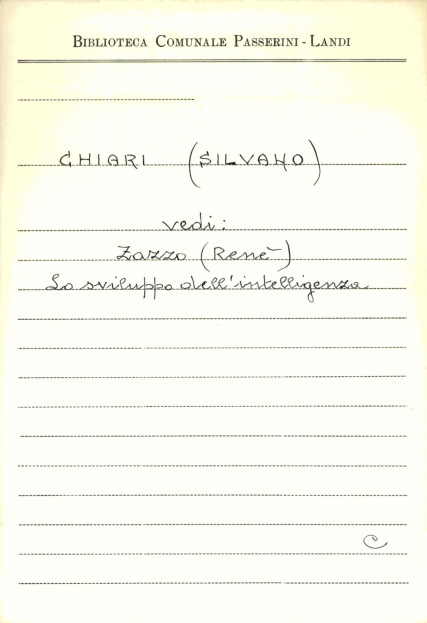 BIBLIOTECA COMUNALE PASSERINI - LANDI
CHIARI (SILVANO)
vedi:
Zazzo (Renè)
Lo sviluppo dell'intelligenza
C